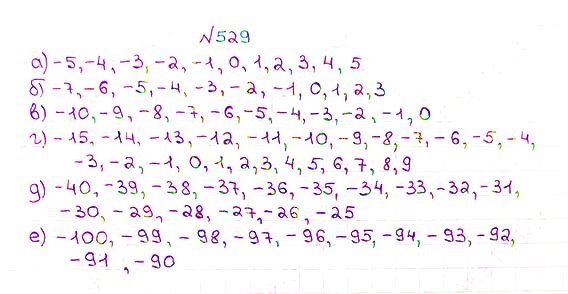 №529
а) -5, -4, -3, -2, -1, 0, 1, 2, 3, 4, 5
б) -7, -6, -5, -4, -3, -2, -1, 0, 1, 2, 3
в) -10, -9, -8, -7, -6, -5, -4, -3, -2, -1, 0
г) -15, -14, -13, -12, -11, -10, -9, -8, -7, -6, -5, -4,
-3, -2, -1, 0, 1, 2, 3, 4, 5, 6, 7, 8, 9
д) -40, -39, -38, -37, -36, -35, -34, -33, -32, -31,
-30, -29, -28, -27, -26, -25
е) -100, -99, -98, -97, -96, -95, -94, -93, -92,
-91, -90